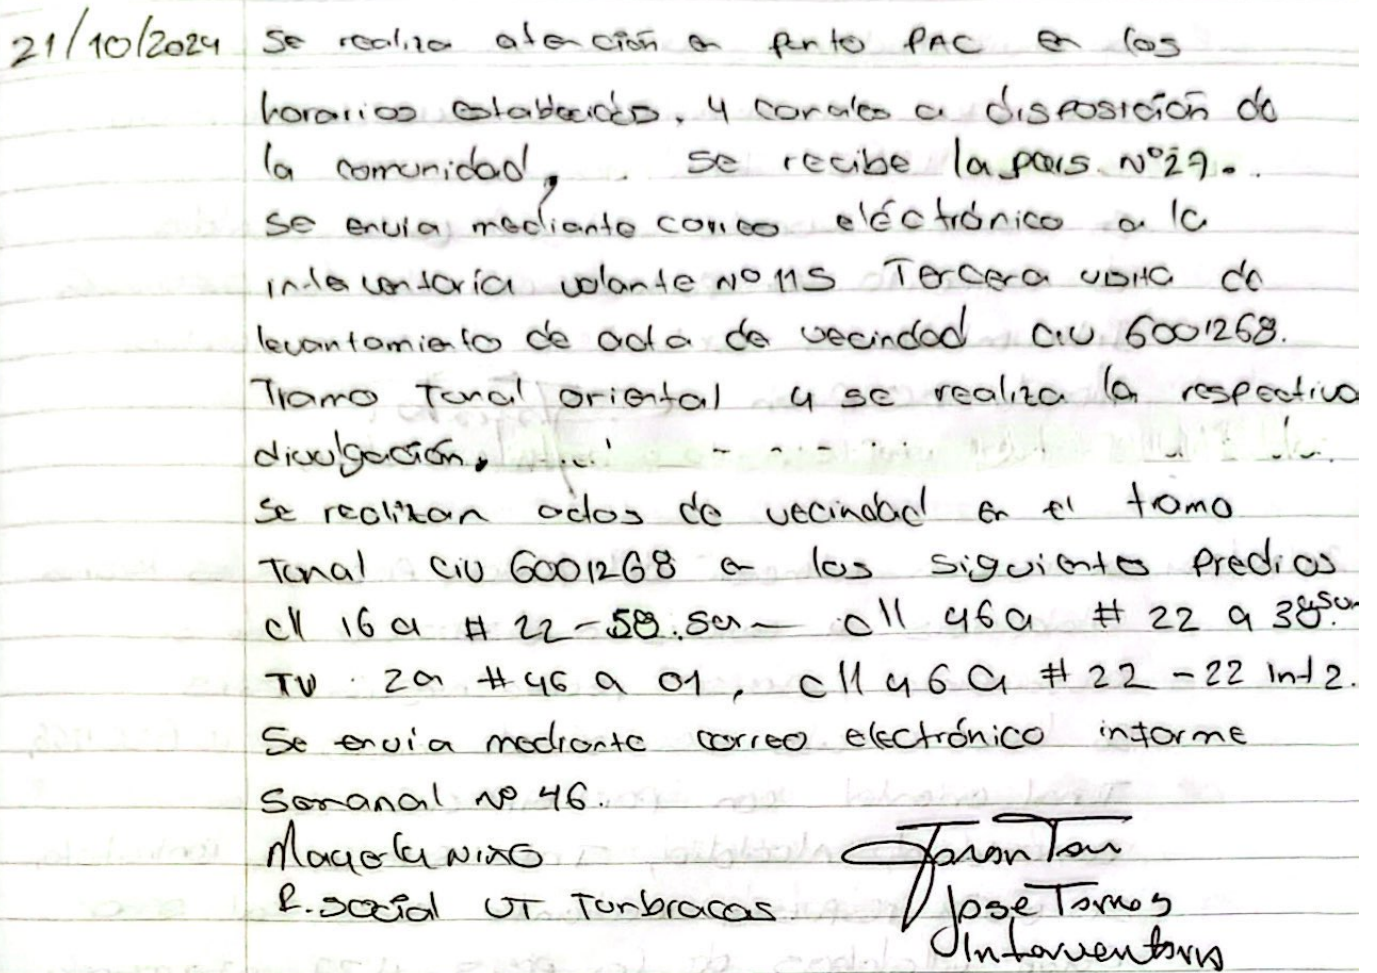 21/10/2024 Se realiza atención en punto PAC en los
horarios establecidos, y canales a disposición de
la comunidad, se recibe la pqrs. Nº 27.
Se envía mediante correo eléctrónico a la
interventoría volante Nº 115 Tercera visita de
levantamiento de acta de vecindad CIV 6001268.
Tramo Tunal oriental y se realiza la respectiva
divulgación.
Se realizan actas de vecindad en el tramo
Tunal CIV 6001268 en los siguientes Predios
cll 16 a # 22-58. sur — cll 46a # 22 a 38 sur.
TV 2a # 46 a 01, cll 46a # 22-22 Int 2.
Se envía mediante correo electrónico informe
semanal Nº 46.
Mayerly NIÑO
R. social UT Tunbracas. José Torres
Interventoria